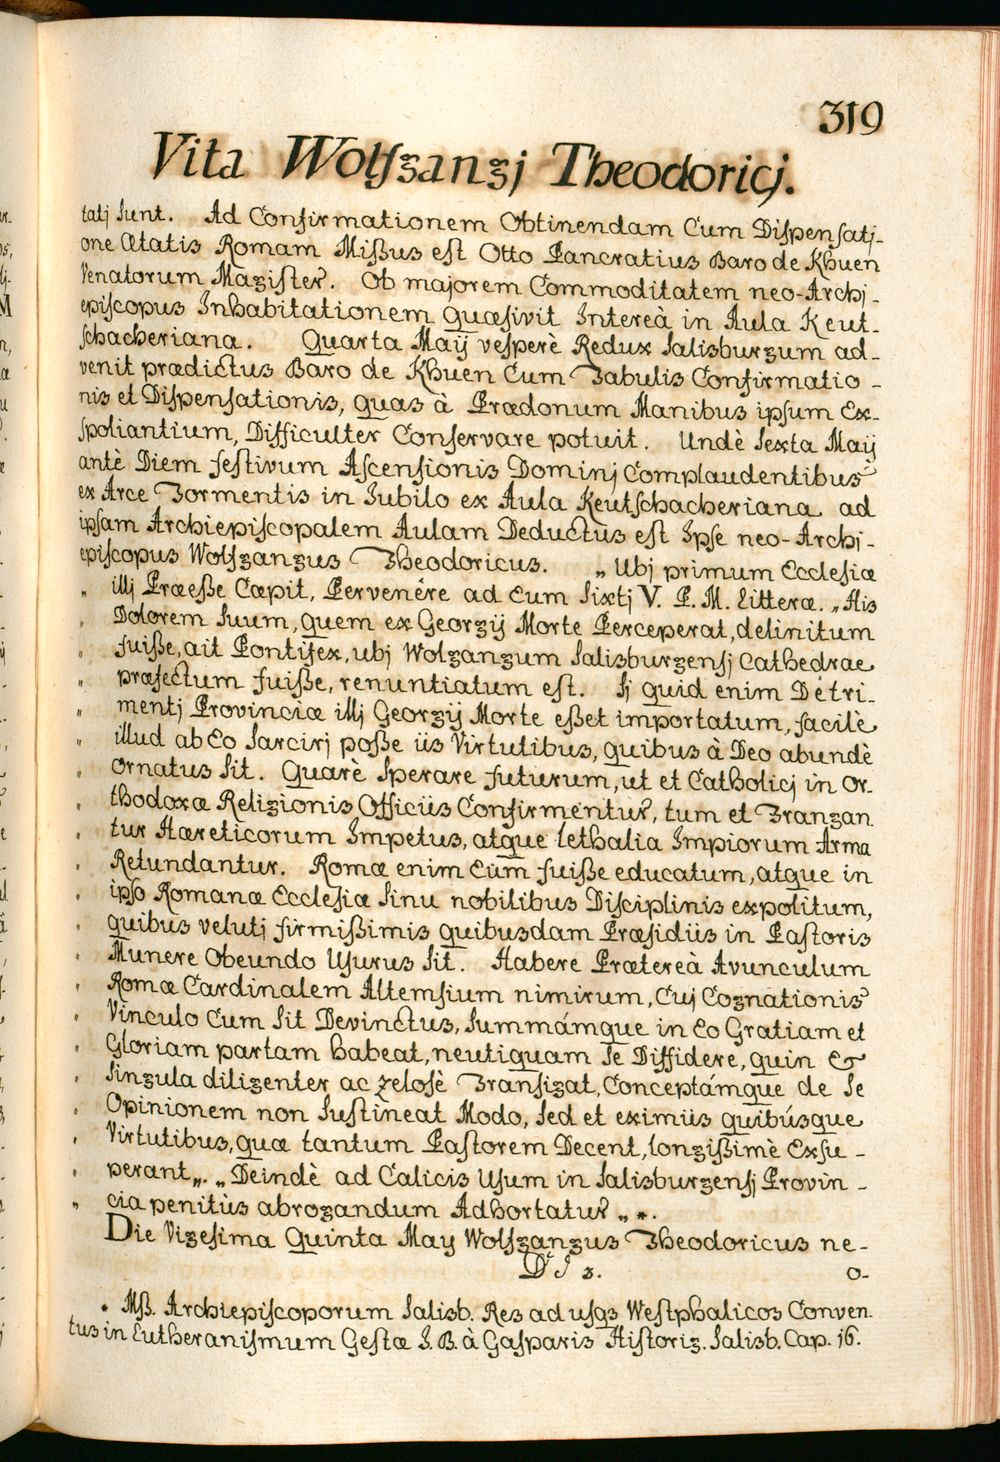 319
Vita Wolfgangj Theodoricj.
tatj sunt. Ad Confirmationem Obtinendam Cum Dispensatj-
one Ætatis Romam Mißus est Otto Pancratius Baro de Khuen
Venatorum Magister. Ob majorem Commoditatem neo-Archj-
episcopus Inhabitationem Quæsivit Intereà in Aula Keut-
schacheriana. Quarta Maij vesperè Redux Salisburgum ad-
venit prædictus Baro de Khuen Cum Tabulis Confirmatio-
nis et Dispensationis, quas à Prædonum Manibus ipsum Ex-
spoliantium, Difficulter Conservare potuit. Undè Sexta Maij
antè Diem festivum Ascensionis Dominj Complaudentibus
ex Arce Tormentis in Jubilo ex Aula Keutschacheriana ad
ipsam Archiepiscopalem Aulam Deductus est Ipse neo-Archj-
episcopus Wolfgangus Theodoricus. „Ubj primum Ecclesiæ
„ illj Præeße Cæpit, Pervenére ad Eum Sixtj V. P. M. Litteræ. „His
„ Dolorem Suum, quem ex Georgij Morte Perceperat, delinitum
„ fuiße, ait Pontifex, ubj Wolgangum Salisburgensj Cathedrae
„ præfectum fuiße, renuntiatum est. Sj quid enim Detri-
„ mentj Provinciæ illj Georgij Morte eßet importatum, facilè
„ illud ab Eo Sarcirj poße iis Virtutibus, quibus à Deo abundè
„ ornatus Sit. Quarè Sperare futurum, ut et Catholicj in Or-
„ thodoxæ Religionis Officiis Confirmentur, tum et Frangan
„ tur Hæreticorum Impetus, atque lethalia Impiorum Arma
„ Retundantur. Romæ enim Eum fuiße educatum, atque in
„ ipso Romanæ Ecclesiæ Sinu nobilibus Disciplinis expolitum,
„ quibus velutj firmißimis quibusdam Præsidiis in Pastoris
„ Munere Obeundo Usurus Sit. Habere Prætereà Avunculum
„ Romæ Cardinalem Altemsium nimirum, Cuj Cognationis
„ Vinculo Cum Sit Devinctus, Summámque in Eo Gratiam et
„ Gloriam partam habeat, neutiquam Se Diffidere, quin &
„ Singula diligenter ac zelosè Transigat, Conceptámque de Se
„ Opinionem non Sustineat Modo, Sed et eximiis quibúsque
„ Virtutibus, quæ tantum Pastorem Decent, longißimè Exsu-
„ perant„. „Deindè ad Calicis Usum in Salisburgensj Provin-
„ cia penitùs abrogandum Adhortatur „ *.
Die Vigesima Quinta May Wolfgangus Theodoricus ne-
o-
* Mß. Archiepiscoporum Salisb. Res ad usqs Westphalicos Conven-
tus in Lutheranismum Gestæ J. B. à Gasparis Historig. Salisb. Cap. 16.